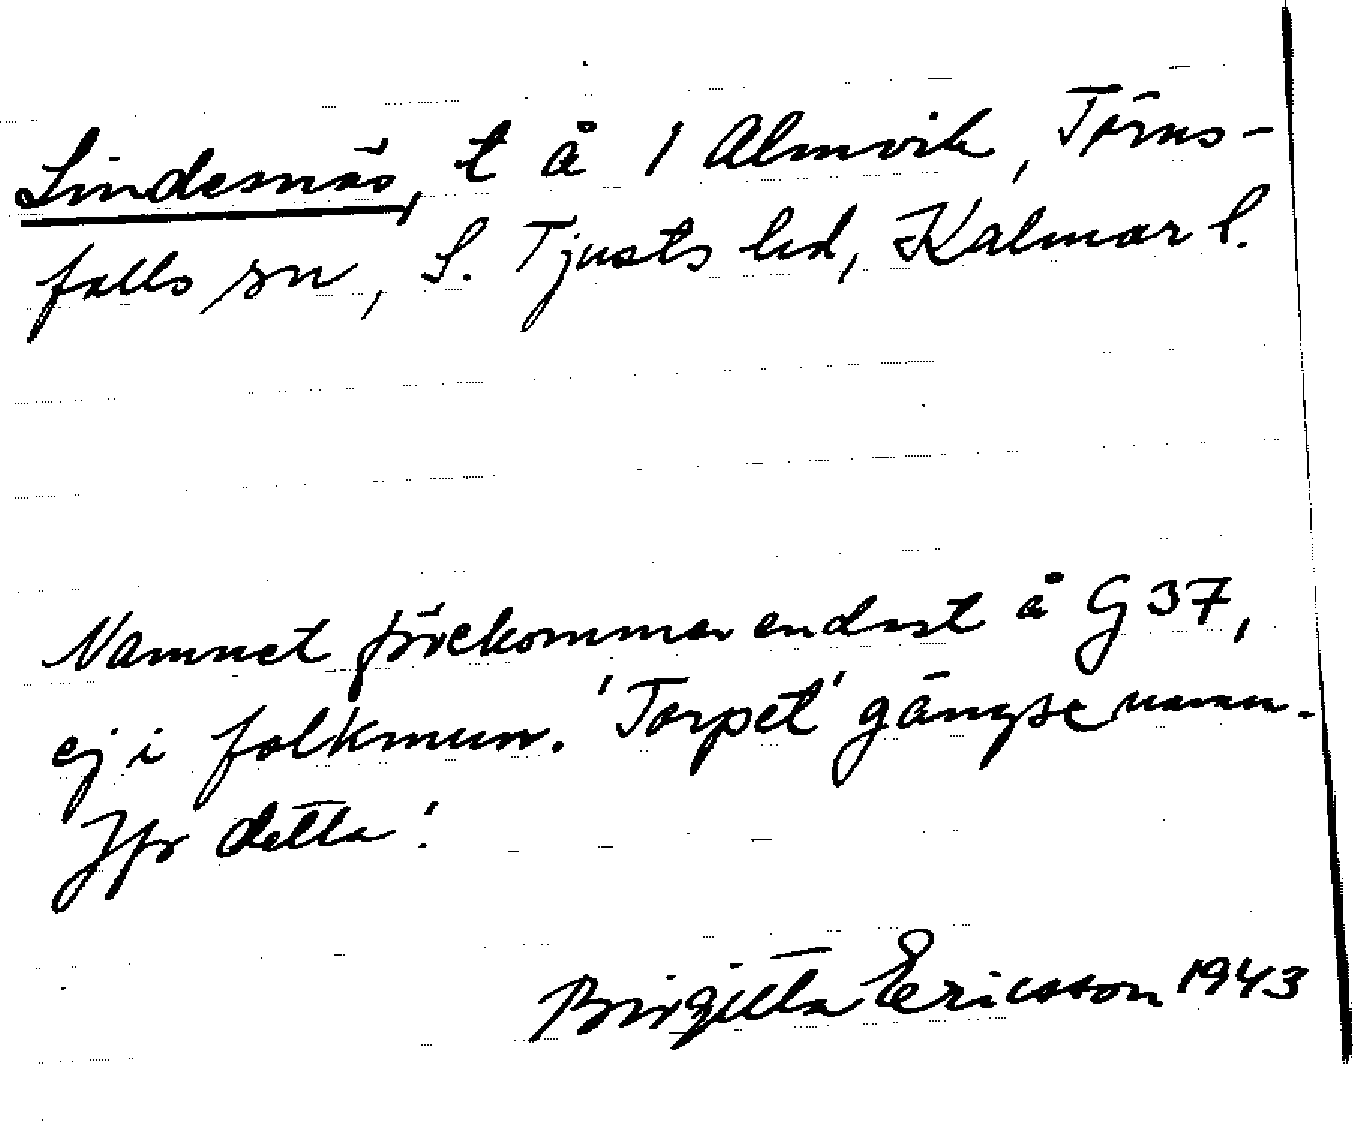 Lindesnäs, t å 1 Almvik, Törns-
falls sn, S. Tjusts hd, Kalmar l.
Namnet förekommer endast å G 37,
ej i folkmun. 'Torpet' gängse namn.
Jfr detta!
Birgitta Ericsson 1943